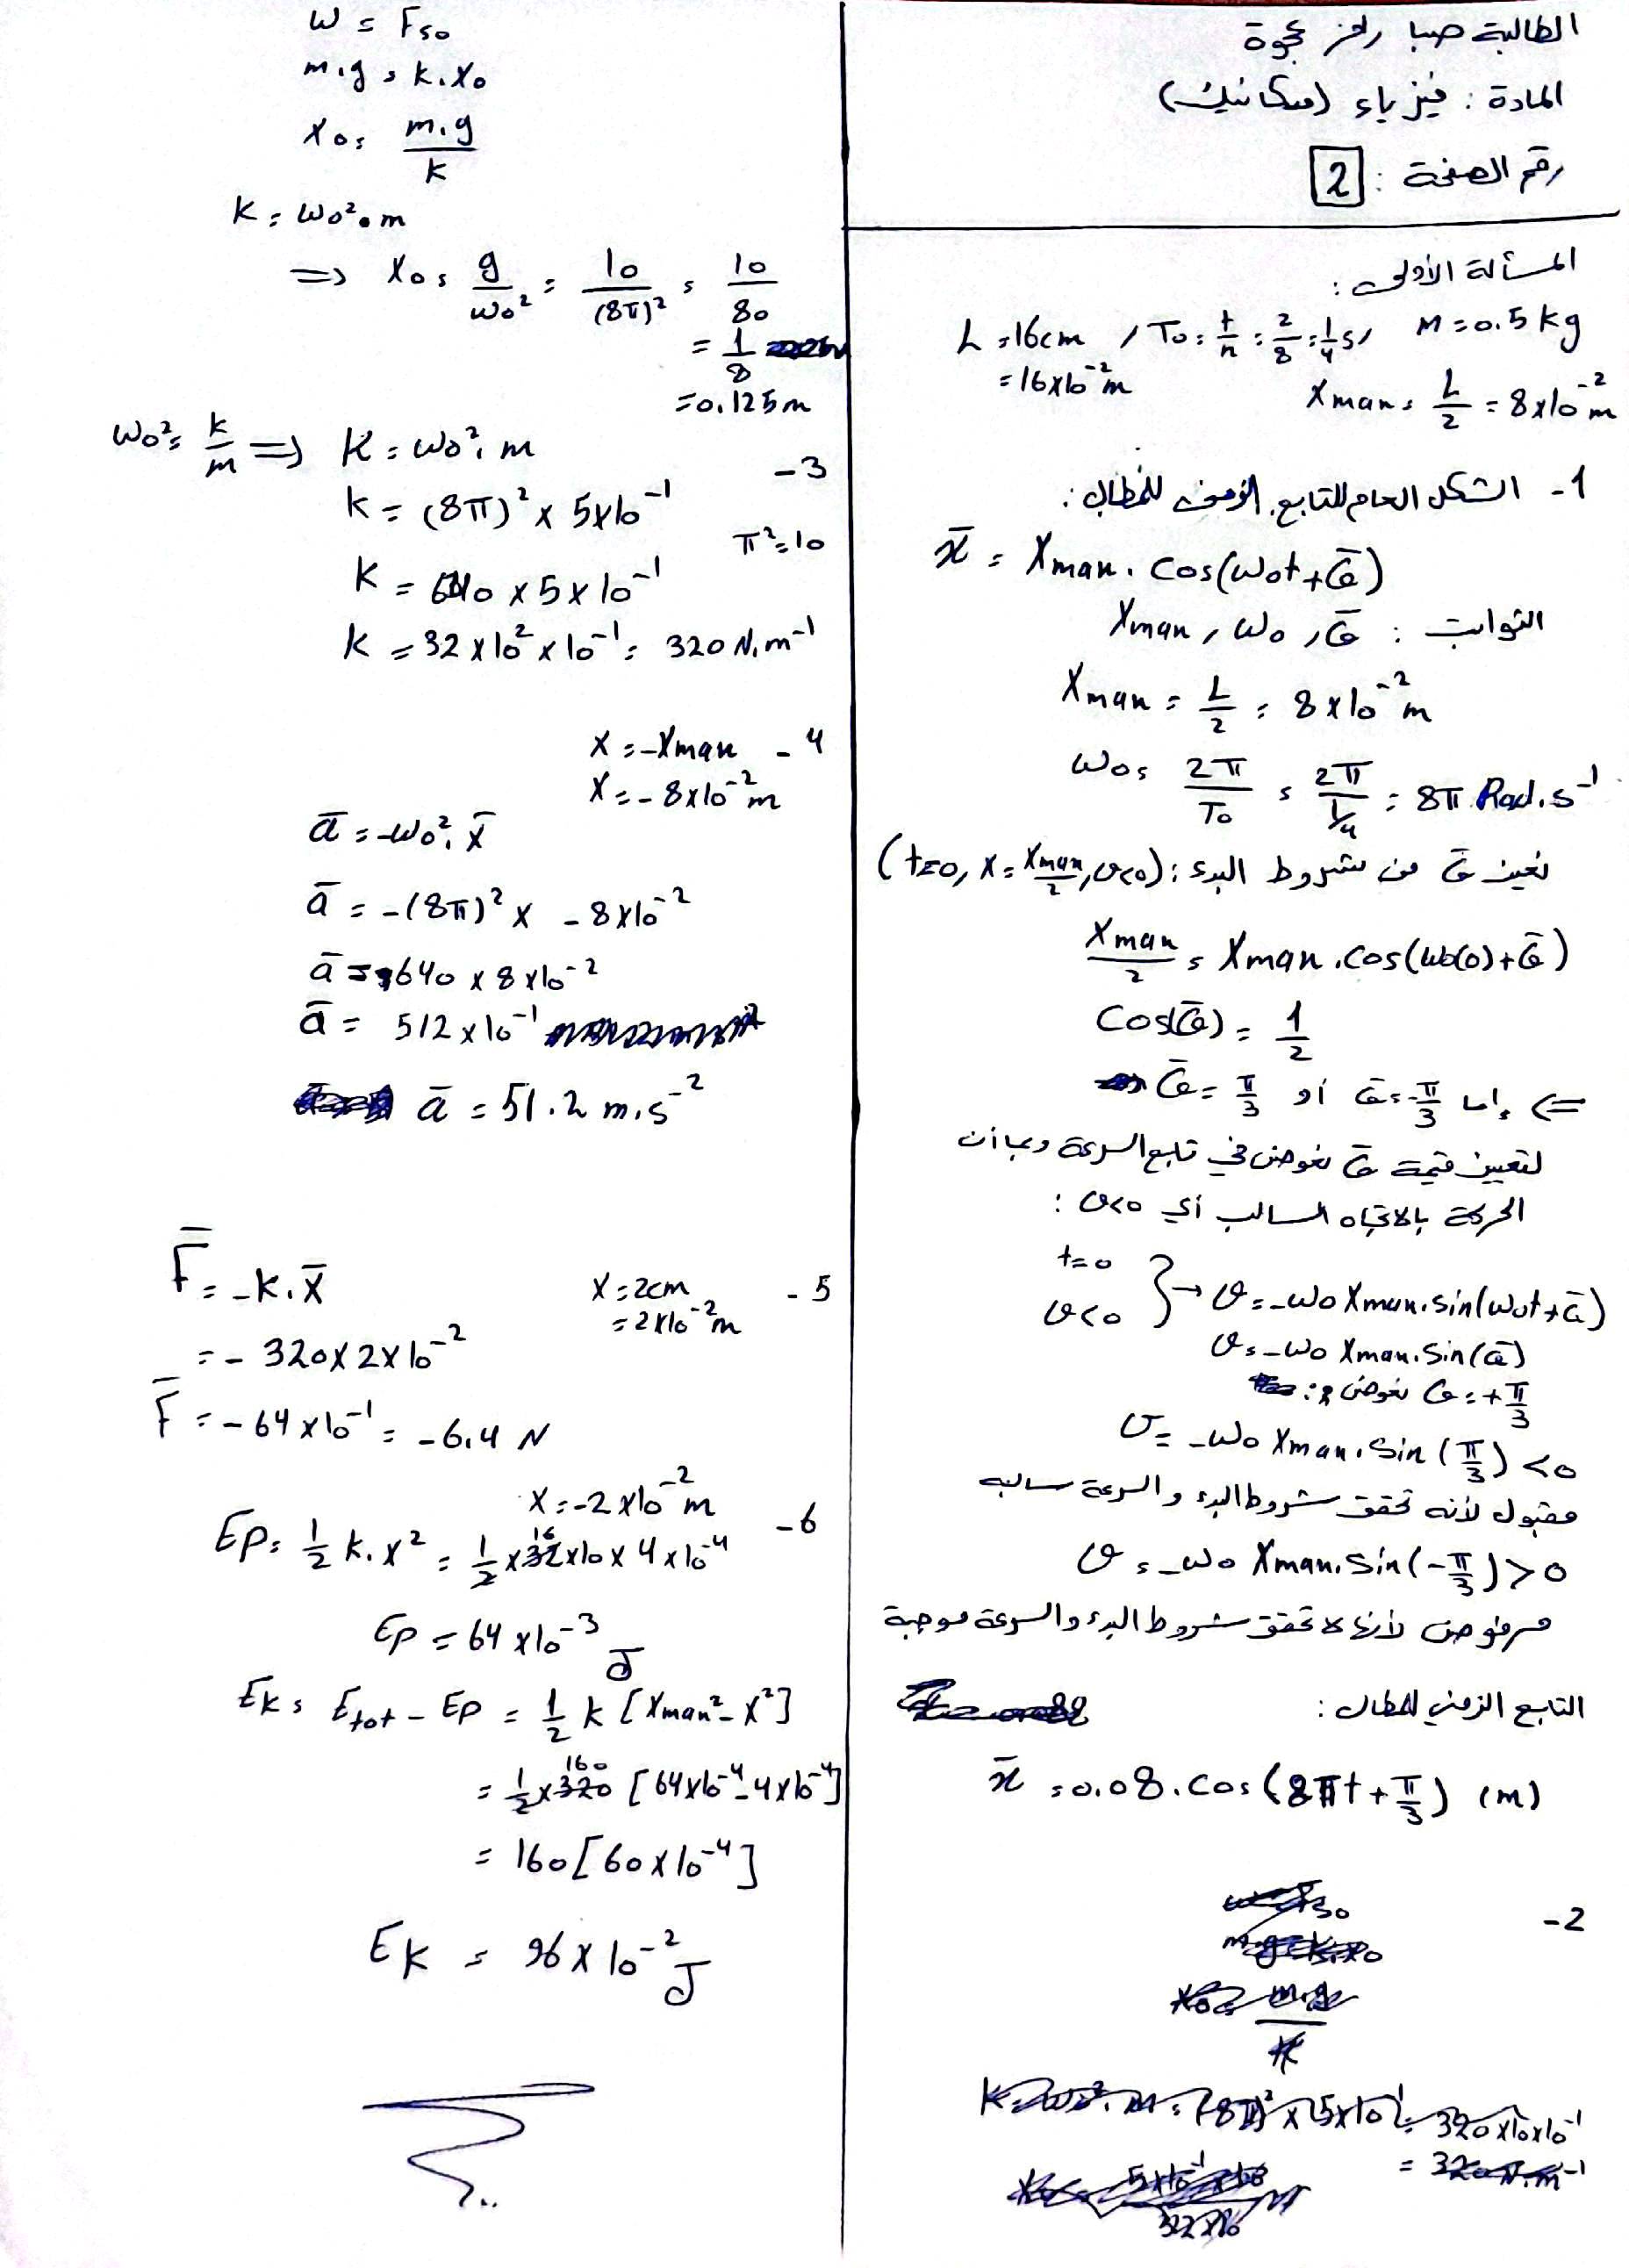 الطالبة صبا رامز عجوة
المادة : فيزياء (ميكانيك)
رقم الصفحة : 2
المسألة الأولى :
L = 16cm / T0 = t/n = 2/8 = 1/4 s / M = 0.5 kg
= 16x10^-2 m
Xmax = L/2 = 8x10^-2 m
1- الشكل العام للتابع الزمني للمطال :
x̄ = Xmax . cos(ω0t + φ̄)
الثوابت : Xmax , ω0 , φ̄
Xmax = L/2 = 8x10^-2 m
ω0 = 2π/T0 = 2π/(1/4) = 8π Rad.s^-1
نعين φ̄ من شروط البدء : (t=0, x = Xmax/2, v<0)
Xmax/2 = Xmax . cos(ω0(0) + φ̄)
cos(φ̄) = 1/2
<= إما φ̄ = -π/3 أو φ̄ = π/3
لتعيين قيمة φ̄ نعوض في تابع السرعة وبما أن
الحركة بالاتجاه السالب أي v<0 :
t=0
v<0 } → v = -ω0 Xmax . sin(ω0t + φ̄)
v = -ω0 Xmax . sin(φ̄)
نعوض φ = +π/3 :
v = -ω0 Xmax . sin(π/3) < 0
مقبول لأنه تحقق شروط البدء والسرعة سالبه
v = -ω0 Xmax . sin(-π/3) > 0
مرفوض لأنها لا تحقق شروط البدء والسرعة موجبة
التابع الزمني للمطال :
x̄ = 0.08 . cos(8πt + π/3) (m)
-2
K = ω0². m = (8π)² x 5x10^-1 = 320x10x10^-1
= 320 N.m^-1
W = Fs0
m.g = k.X0
X0 = m.g/k
K = ω0² . m
=> X0 = g/ω0² = 10/(8π)² = 10/80
= 1/8
= 0.125m
-3
ω0² = k/m => K = ω0² . m
k = (8π)² x 5x10^-1
π² = 10
K = 640 x 5 x 10^-1
k = 32 x 10² x 10^-1 = 320 N.m^-1
x = -Xmax - 4
X = -8x10^-2 m
ā = -ω0² . x̄
ā = -(8π)² x - 8x10^-2
ā = 640 x 8x10^-2
ā = 512 x 10^-1
ā = 51.2 m.s^-2
F̄ = -K . x̄
X = 2cm - 5
= 2x10^-2 m
= - 320 x 2x10^-2
F̄ = - 64 x 10^-1 = -6.4 N
X = -2x10^-2 m
-6
Ep = 1/2 k . x² = 1/2 x 32 16 x10 x 4x10^-4
Ep = 64 x10^-3 J
Ek = Etot - Ep = 1/2 k [Xmax² - X²]
= 1/2 x 320 160 [64x10^-4 - 4x10^-4]
= 160 [60 x 10^-4]
Ek = 96 x 10^-2 J